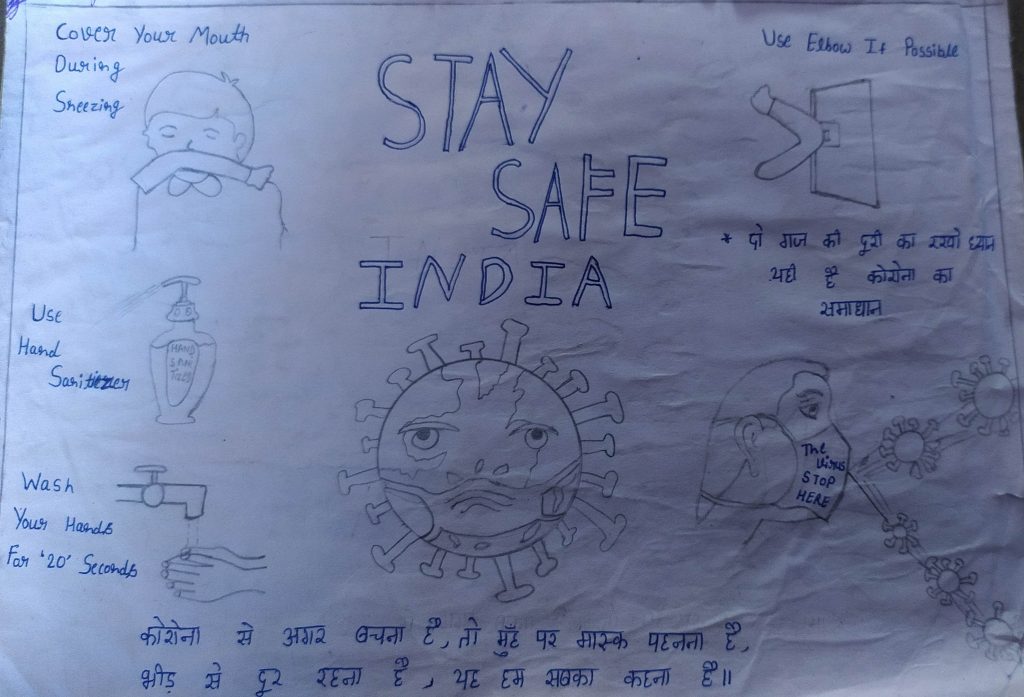 Cover Your Mouth
During
Sneezing
STAY
SAFE
INDIA
Use Elbow If Possible
* दो गज की दूरी का रखो ध्यान
यही है कोरोना का
समाधान
Use
Hand
Sanitizer
HAND
SANI
TIZER
Wash
Your Hands
For '20' Seconds
The
Virus
STOP
HERE
कोरोना से अगर बचना है, तो मुँह पर मास्क पहनना है,
भीड़ से दूर रहना है, यह हम सबका कहना है॥